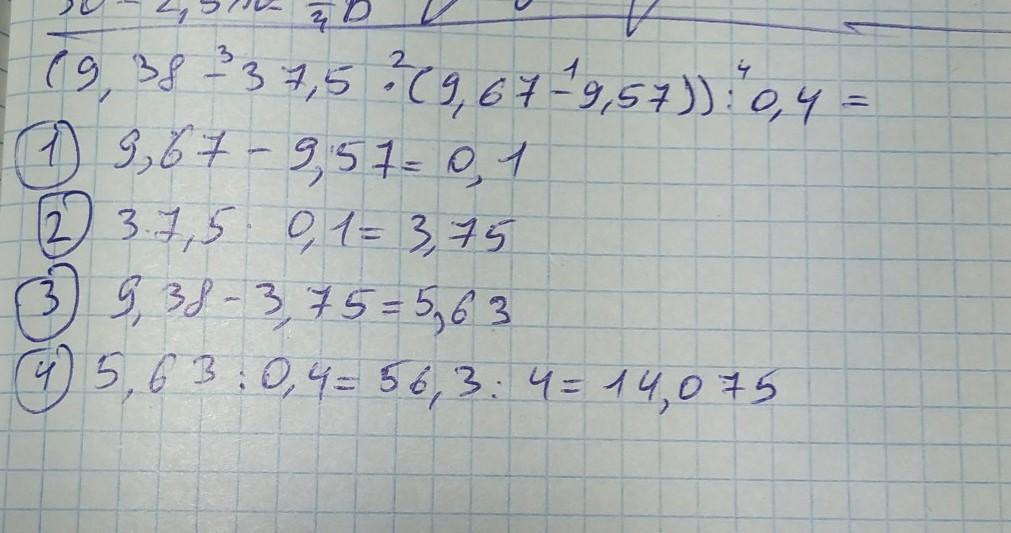 (9,38 - 37,5 · (9,67 - 9,57)) : 0,4 =
3 2 1 4
1 9,67 - 9,57 = 0,1
2 37,5 · 0,1 = 3,75
3 9,38 - 3,75 = 5,63
4 5,63 : 0,4 = 56,3 : 4 = 14,075